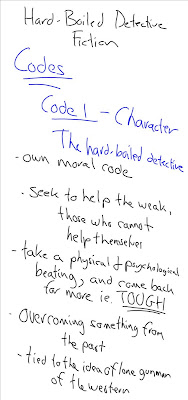 Hard-Boiled Detective
Fiction
Codes
Code 1 - Character
The hard-boiled detective
- own moral code
- seek to help the weak,
those who cannot
help themselves
- take a physical & psychological
beating, and come back
for more ie. TOUGH
- overcoming something from
the past
- tied to the idea of lone gunman
of the western